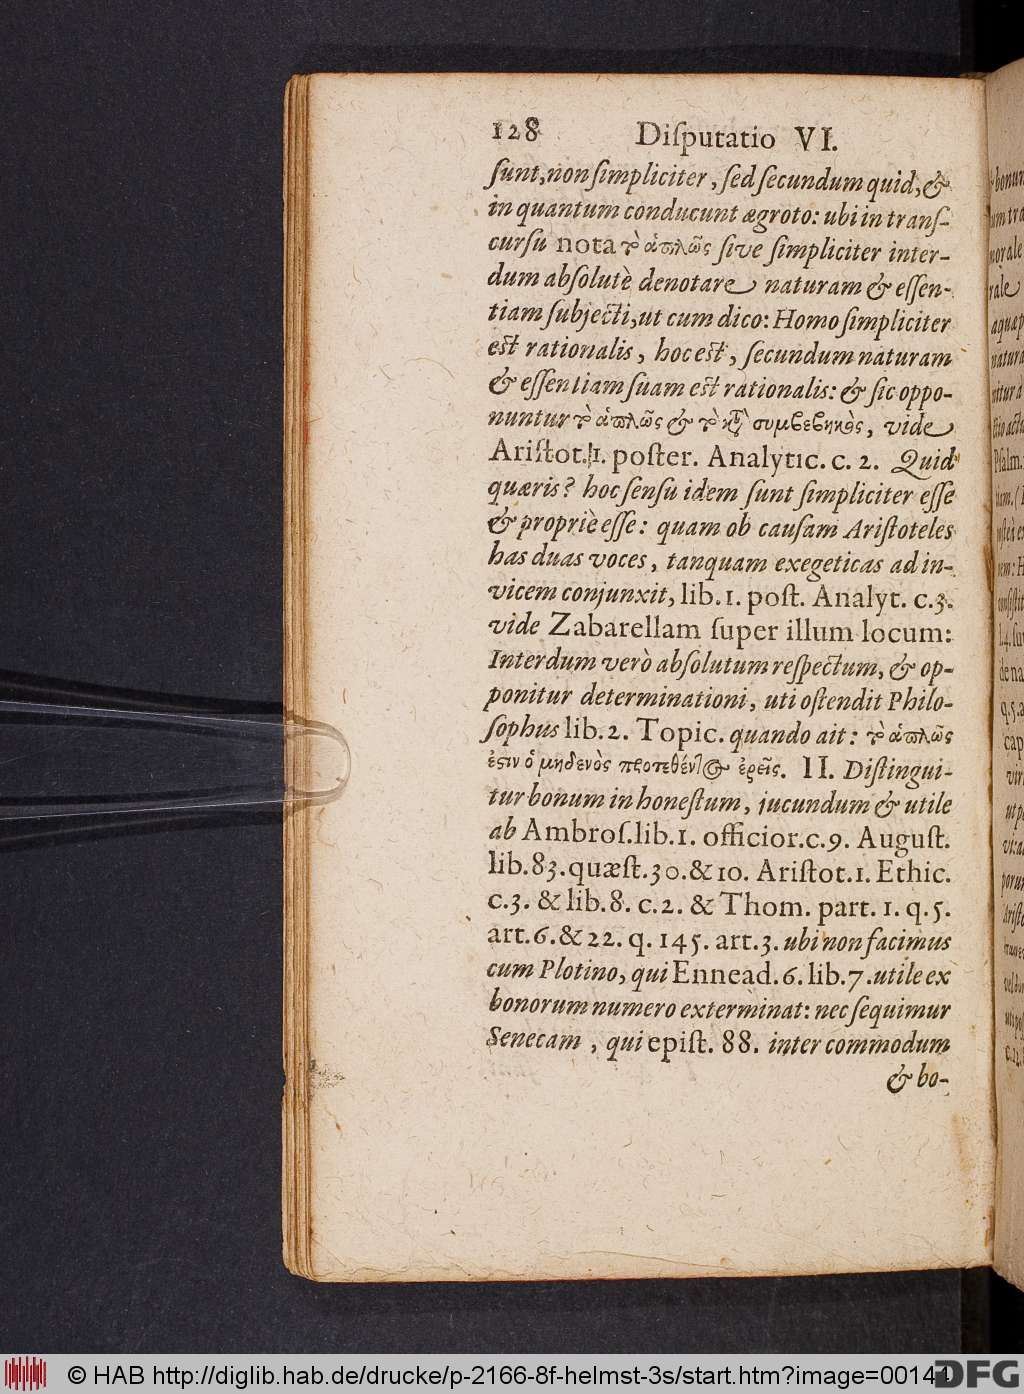 128 Diſputatio VI.
ſunt, non ſimpliciter, ſed ſecundum quid, &
in quantum conducunt ægroto: ubi in tranſ-
curſu nota τὸ ἁπλῶς ſive ſimpliciter inter-
dum abſolutè denotare naturam & eſſen-
tiam ſubjecti, ut cum dico: Homo ſimpliciter
eſt rationalis, hoc eſt, ſecundum naturam
& eſſentiam ſuam eſt rationalis: & ſic oppo-
nuntur τὸ ἁπλῶς & τὸ κτ̀ συμβεβηκὸς, vide
Ariſtot. 1. poſter. Analytic. c. 2. Quid
quæris? hoc ſenſu idem ſunt ſimpliciter eſſe
& propriè eſſe: quam ob cauſam Ariſtoteles
has duas voces, tanquam exegeticas ad in-
vicem conjunxit, lib. 1. poſt. Analyt. c. 3.
vide Zabarellam ſuper illum locum:
Interdum verò abſolutum reſpectum, & op-
ponitur determinationi, uti oſtendit Philo-
ſophus lib. 2. Topic. quando ait: τὸ ἁπλῶς
ἐςιν ὁ μηδενὸς προτεθέντος ἐρεῖς. II. Diſtingui-
tur bonum in honeſtum, jucundum & utile
ab Ambroſ. lib. 1. officior. c. 9. Auguſt.
lib. 83. quæſt. 30. & 10. Ariſtot. 1. Ethic.
c. 3. & lib. 8. c. 2. & Thom. part. 1. q. 5.
art. 6. & 22. q. 145. art. 3. ubi non facimus
cum Plotino, qui Ennead. 6. lib. 7. utile ex
bonorum numero exterminat: nec ſequimur
Senecam, qui epiſt. 88. inter commodum
& bo-
© HAB http://diglib.hab.de/drucke/p-2166-8f-helmst-3s/start.htm?image=00144
DFG